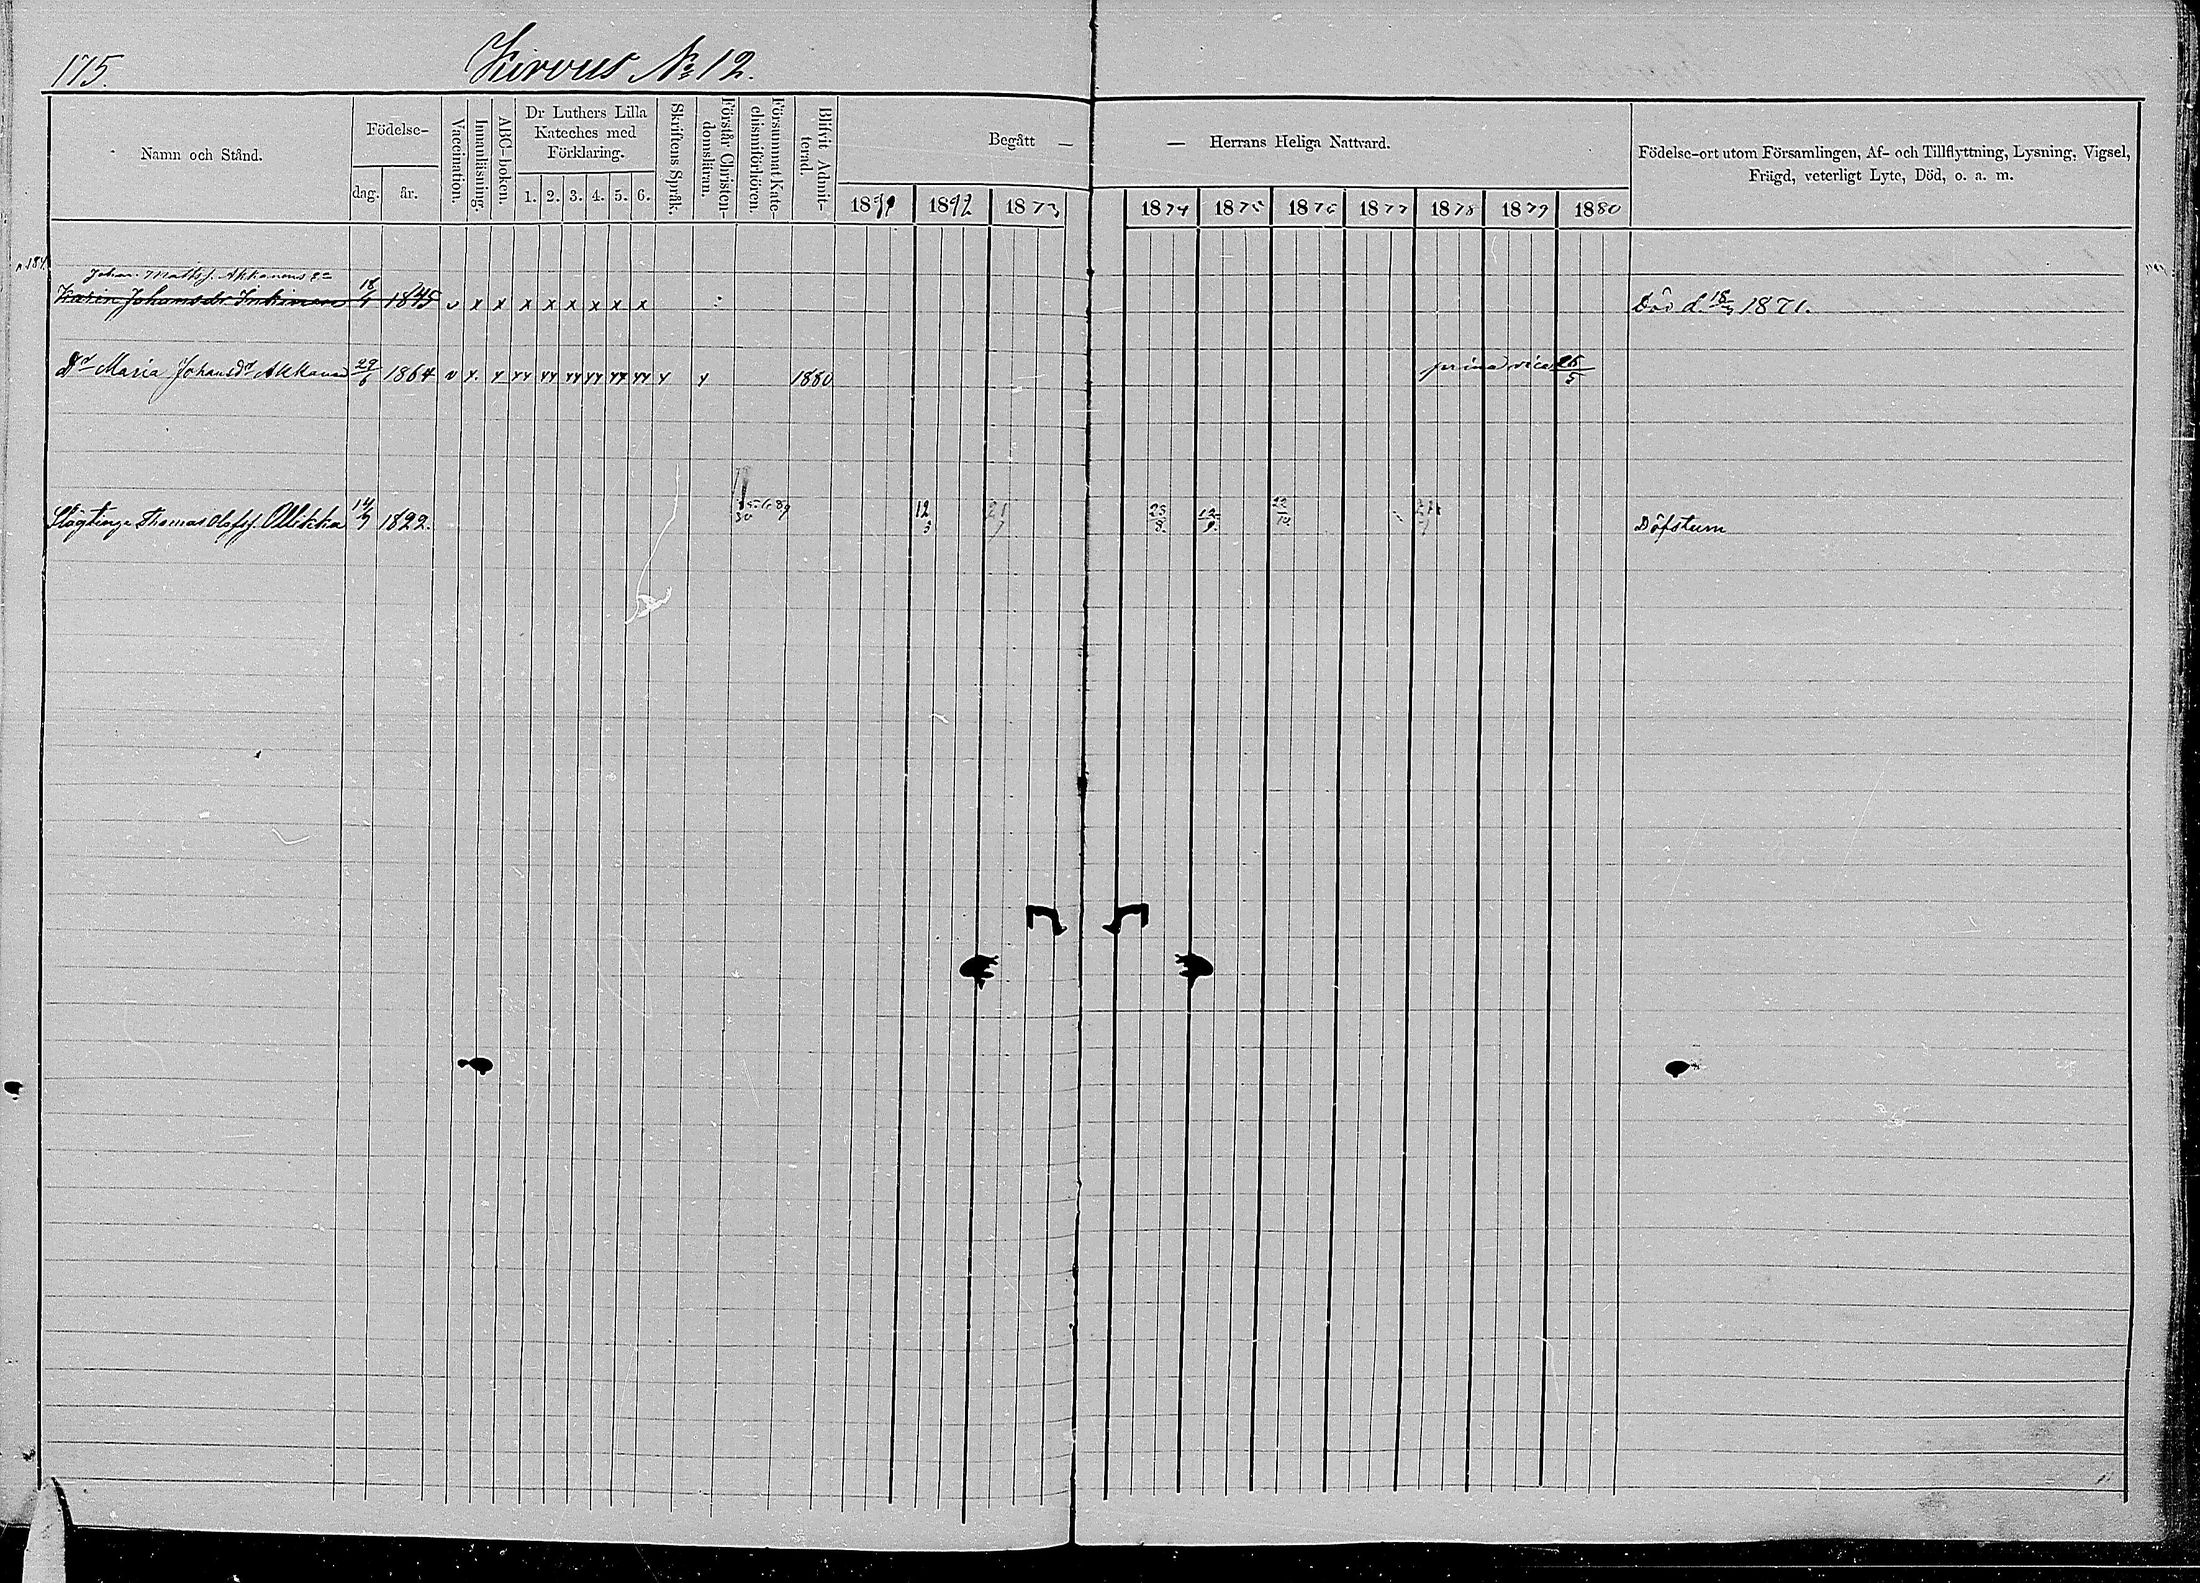 175.
Kirvus № 12.
Namn och Stånd.
Födelse-
dag.
år.
Vaccination.
Innanläsning.
ABC-boken.
Dr Luthers Lilla
Kateches med
Förklaring.
1. 2. 3. 4. 5. 6.
Skriftens Språk.
Förstår Christen-
domsläran.
Försummat Kate-
chismiförhören.
Blifvit Admit-
terad.
Begått —
— Herrans Heliga Nattvard.
1892
1873
1874 1875 1876 1877 1878 1879 1880
Födelse-ort utom Församlingen, Af- och Tillflyttning, Lysning, Vigsel,
Frägd, veterligt Lyte, Död, o. a. m.
Johan Mattsf. Akkanens
Karin Johansdr Inkinen 1845 v x x x x x x x x
Död d. 18/3 1871.
Dr Maria Johansdr Akkanen 29/6 1864 v x 1880 prima vice 26/5
Thomas Olofsf. Ollikka 14/9 1822. 12/3 21/7 23/8. 12/9.
Döfstum